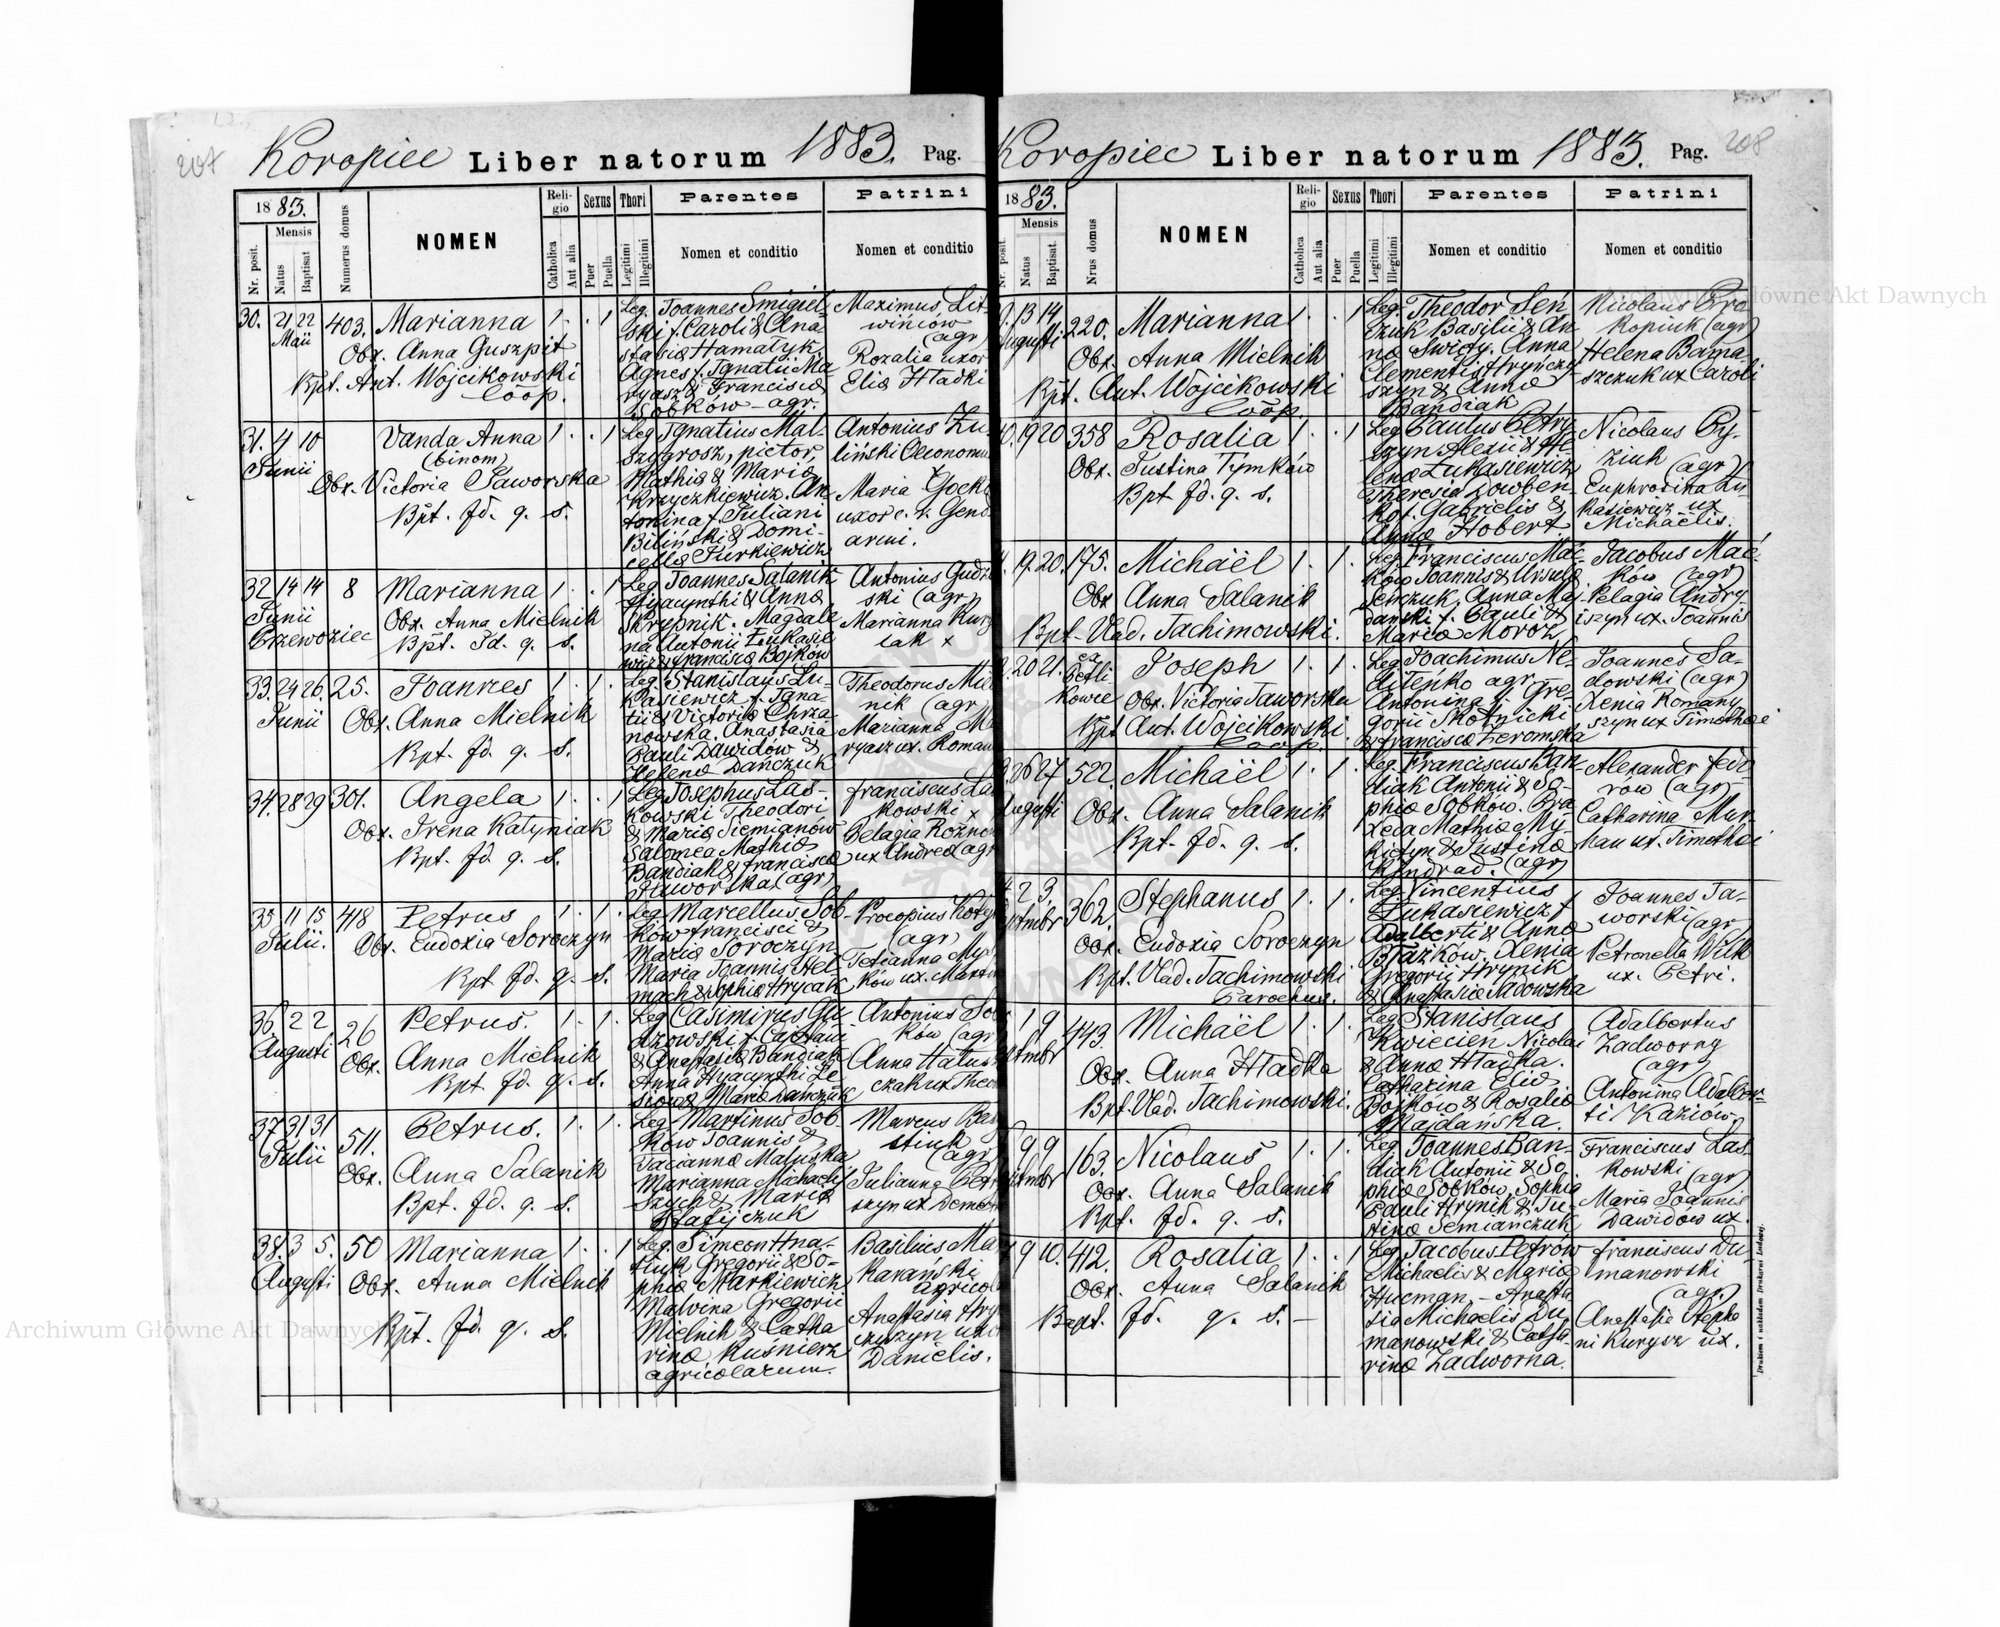 207
Koropiec Liber natorum 1883. Pag.
1883.
Mensis
Nr. posit.
Natus
Baptisat
Numerus domus
NOMEN
Religio
Catholica
Aut alia
Sexus
Puer
Puella
Thori
Legitimi
Illegitimi
Parentes
Nomen et conditio
Patrini
Nomen et conditio
30. 21 22 403. Marianna 1 . . 1
Maii
Obx. Anna Guszpit
Bpt. Ant. Wojcikowski
Coop.
Leg. Joannes Smigiel-
ski f. Caroli & Ana-
stasia Hamatyk
Agnes f. Ignatii Ma
ryasz & Francisca
Sobków - agr.
Maximus Lit-
winców
(agr
Rozalia uxor
Elia Hładki
31. 4 10 Vanda Anna 1 . . 1
Junii (binom)
Obx. Victoria Jaworska
Bpt. Jd. q. s.
Leg. Ignatius Mal-
szygrosz, pictor,
Mathia & Maria
Krzyczkiewicz. An-
tonina f. Juliani
Biliński & Domi-
cella Turkiewicz
Antonius Zu
liński Oeconomu
Maria
uxor c. r. Gend
armi.
32 14 14 8 Marianna 1 . . 1
Junii
Przewoziec
Obx. Anna Mielnik
Bpt. Jd. q. s.
Leg. Joannes Salanik
Hyacynthi & Anna
Skrypnik. Magdale
na Antonii Łukasie
wicz & Francisca Bojków
Antonius Gudz
ski (agr)
Marianna Kury
lak x
33. 24 26. 25. Joannes 1 . 1 .
Junii
Obx. Anna Mielnik
Bpt. Jd. q. s.
Leg. Stanislaus Łu-
kasiewicz f. Igna-
tii & Victoria Chrza-
nowska. Anastasia
Pauli Dawidów &
Helena Dańczuk
Theodorus Miel
nik (agr
Marianna Ma
ryasz ux. Roman
34. 28 29 301. Angela 1 . . 1
Obx. Irena Katyniak
Bpt. Jd. q. s.
Leg. Josephus Las-
kowski Theodori
& Maria Siemianów
Salomea Mathia
Bandiak & Francisca
Jaworska (agr)
Franciscus Las
kowski x
Pelagia Rożno
ux Andrea (agr
35 11 15 418 Petrus 1 . 1 .
Julii.
Obx. Eudoxia Soroczyn
Bpt Jd. q. s.
Leg. Marcellus Sob-
ków Francisci &
Maria Soroczyn
Maria Joannis Hel-
mach & Sophia Hrycak
Procopius Koty
(agr)
Tetianna My
ków ux. Martin
36. 2 2 26 Petrus. 1 . 1 .
Augusti
Obx. Anna Mielnik
Bpt. Jd. q. s.
Leg. Casimirus Gu
dzowski f. Cajetani
& Anastasia Bandiak
Anna Hyacynthi Le
siów & Maria Dańczuk
Antonius Sob
ków (agr
Anna Hatus
czak ux Theo
37 31 31 511. Petrus. 1 . 1 .
Julii
Obx. Anna Salanik
Bpt. Jd. q. s.
Leg. Martinus Sob
ków Joannis &
Tacianna Matuska
Marianna Michaeli
& Maria
Stafijczuk
Marcus Bas
stiuk
(agr)
Julianna Petry
szyn ux Deme
38. 3 5. 50 Marianna 1 . . 1
Augusti
Obx. Anna Mielnik
Bpt. Jd. q. s.
Leg. Simeon Hna-
tiuk Gregorii & So-
phia Markiewicz
Malvina Gregorii
Mielnik & Catha
rina Kuśnierz
agricolarum.
Basilius Ma
karański
agricol
Anastasia Hry
czyszyn uxo
Danielis.
208
Koropiec Liber natorum 1883. Pag.
1883.
Mensis
Nr. posit.
Natus
Baptisat.
Nrus domus
NOMEN
Religio
Catholica
Aut alia
Sexus
Puer
Puella
Thori
Legitimi
Illegitimi
Parentes
Nomen et conditio
Patrini
Nomen et conditio
9. 13 14 220. Marianna 1 . . 1
Augusti
Obx. Anna Mielnik
Bpt. Ant. Wojcikowski
Coop.
Leg. Theodor Sen
czuk Basilii & An
na Swięty. Anna
Clementis Hryńczy
szyn & Anna
Bandiak
Nicolaus Pro
kopiuk (agr)
Helena Barna
szczuk ux Caroli
0. 19 20 358 Rosalia 1 . . 1
Obx. Justina Tymków
Bpt Jd. q. s.
Leg Paulus Petry-
szyn Alexii & He-
lena Łukasiewicz
Theresia Dowben-
ko f. Gabrielis &
Anna Hobert
Nicolaus Py-
ziuk (agr)
Euphrosina Łu
kasiewicz ux
Michaëlis.
19. 20. 175. Michaël 1 . 1 .
Obx Anna Salanik
Bpt. Vlad. Jachimowski.
Leg. Franciscus Mać-
ków Joannis & Ursula
Senczuk, Anna Maj
dański f. Pauli &
Maria Moroz
Jacobus Mać-
ków (agr)
Pelagia Andry
iszyn ux. Joannis
20 21. ex Petli
kowce
Joseph 1 . 1 .
Obx. Victoria Jaworska
Bpt Ant. Wojcikowski.
Coop.
Leg. Joachimus Ne-
dilenko agr.
Antonina f. Gre-
gorii Skotnicki
& Francisca Żeromska
Joannes Sa-
dowski (agr)
Xenia Romany
szyn ux Timothaei
26 27 522. Michaël 1 . 1 .
Augusti
Obx. Anna Salanik
Bpt. Jd. q. s.
Leg. Franciscus Ban-
diak Antonii & So-
phia Sobków. Pra
xeda Mathia My-
kietyn & Justina
Kindrad. (agr)
Alexander Fedo
row (agr)
Catharina Mur-
han ux. Timothei
2 3. 362. Stephanus 1 . 1 .
Obx. Eudoxia Soroczyn
Bpt. Vlad. Jachimowski
Parochus.
Leg. Vincentius
Łukasiewicz f
Adalberti & Anna
Błazków. Xenia
Gregorii Hrynik
& Anastasia Sadowska
Joannes Ja-
worski (agr
Petronella Wilk
ux. Petri.
1 9 443. Michaël 1 . 1 .
Obx. Anna Hładka
Bpt. Vlad. Jachimowski.
Leg. Stanislaus
Kwiecien Nicolai
& Anna Hładka.
Catharina Elia
Bojków & Rosalia
Majdańska.
Adalbertus
Zadworny
(agr)
Antonina Adalber-
ti Kaziów
9 9 163. Nicolaus 1 . 1 .
Obx. Anna Salanik
Bpt. Jd. q. s.
Leg. Joannes Ban-
diak Antonii & So
phia Sobków, Sophia
Pauli Hrynik & Ju-
stina Semiańczuk
Franciscus Las-
kowski
(agr)
Maria Joannis
Dawidów ux.
9 10. 412. Rosalia 1 . . 1
Obx. Anna Salanik
Bapt. Jd. q. s. —
Leg Jacobus Petrów
Michaelis & Maria
Hucman, - Anasta
sia Michaelis Du
manowski & Catha-
rina Zadworna.
Franciscus Du
manowski
(agr)
Anastasia Stepha
ni Kurysz ux.
Drukiem i nakładem Drukarni Ludowej.
Archiwum Główne Akt Dawnych
Archiwum Główne Akt Dawnych